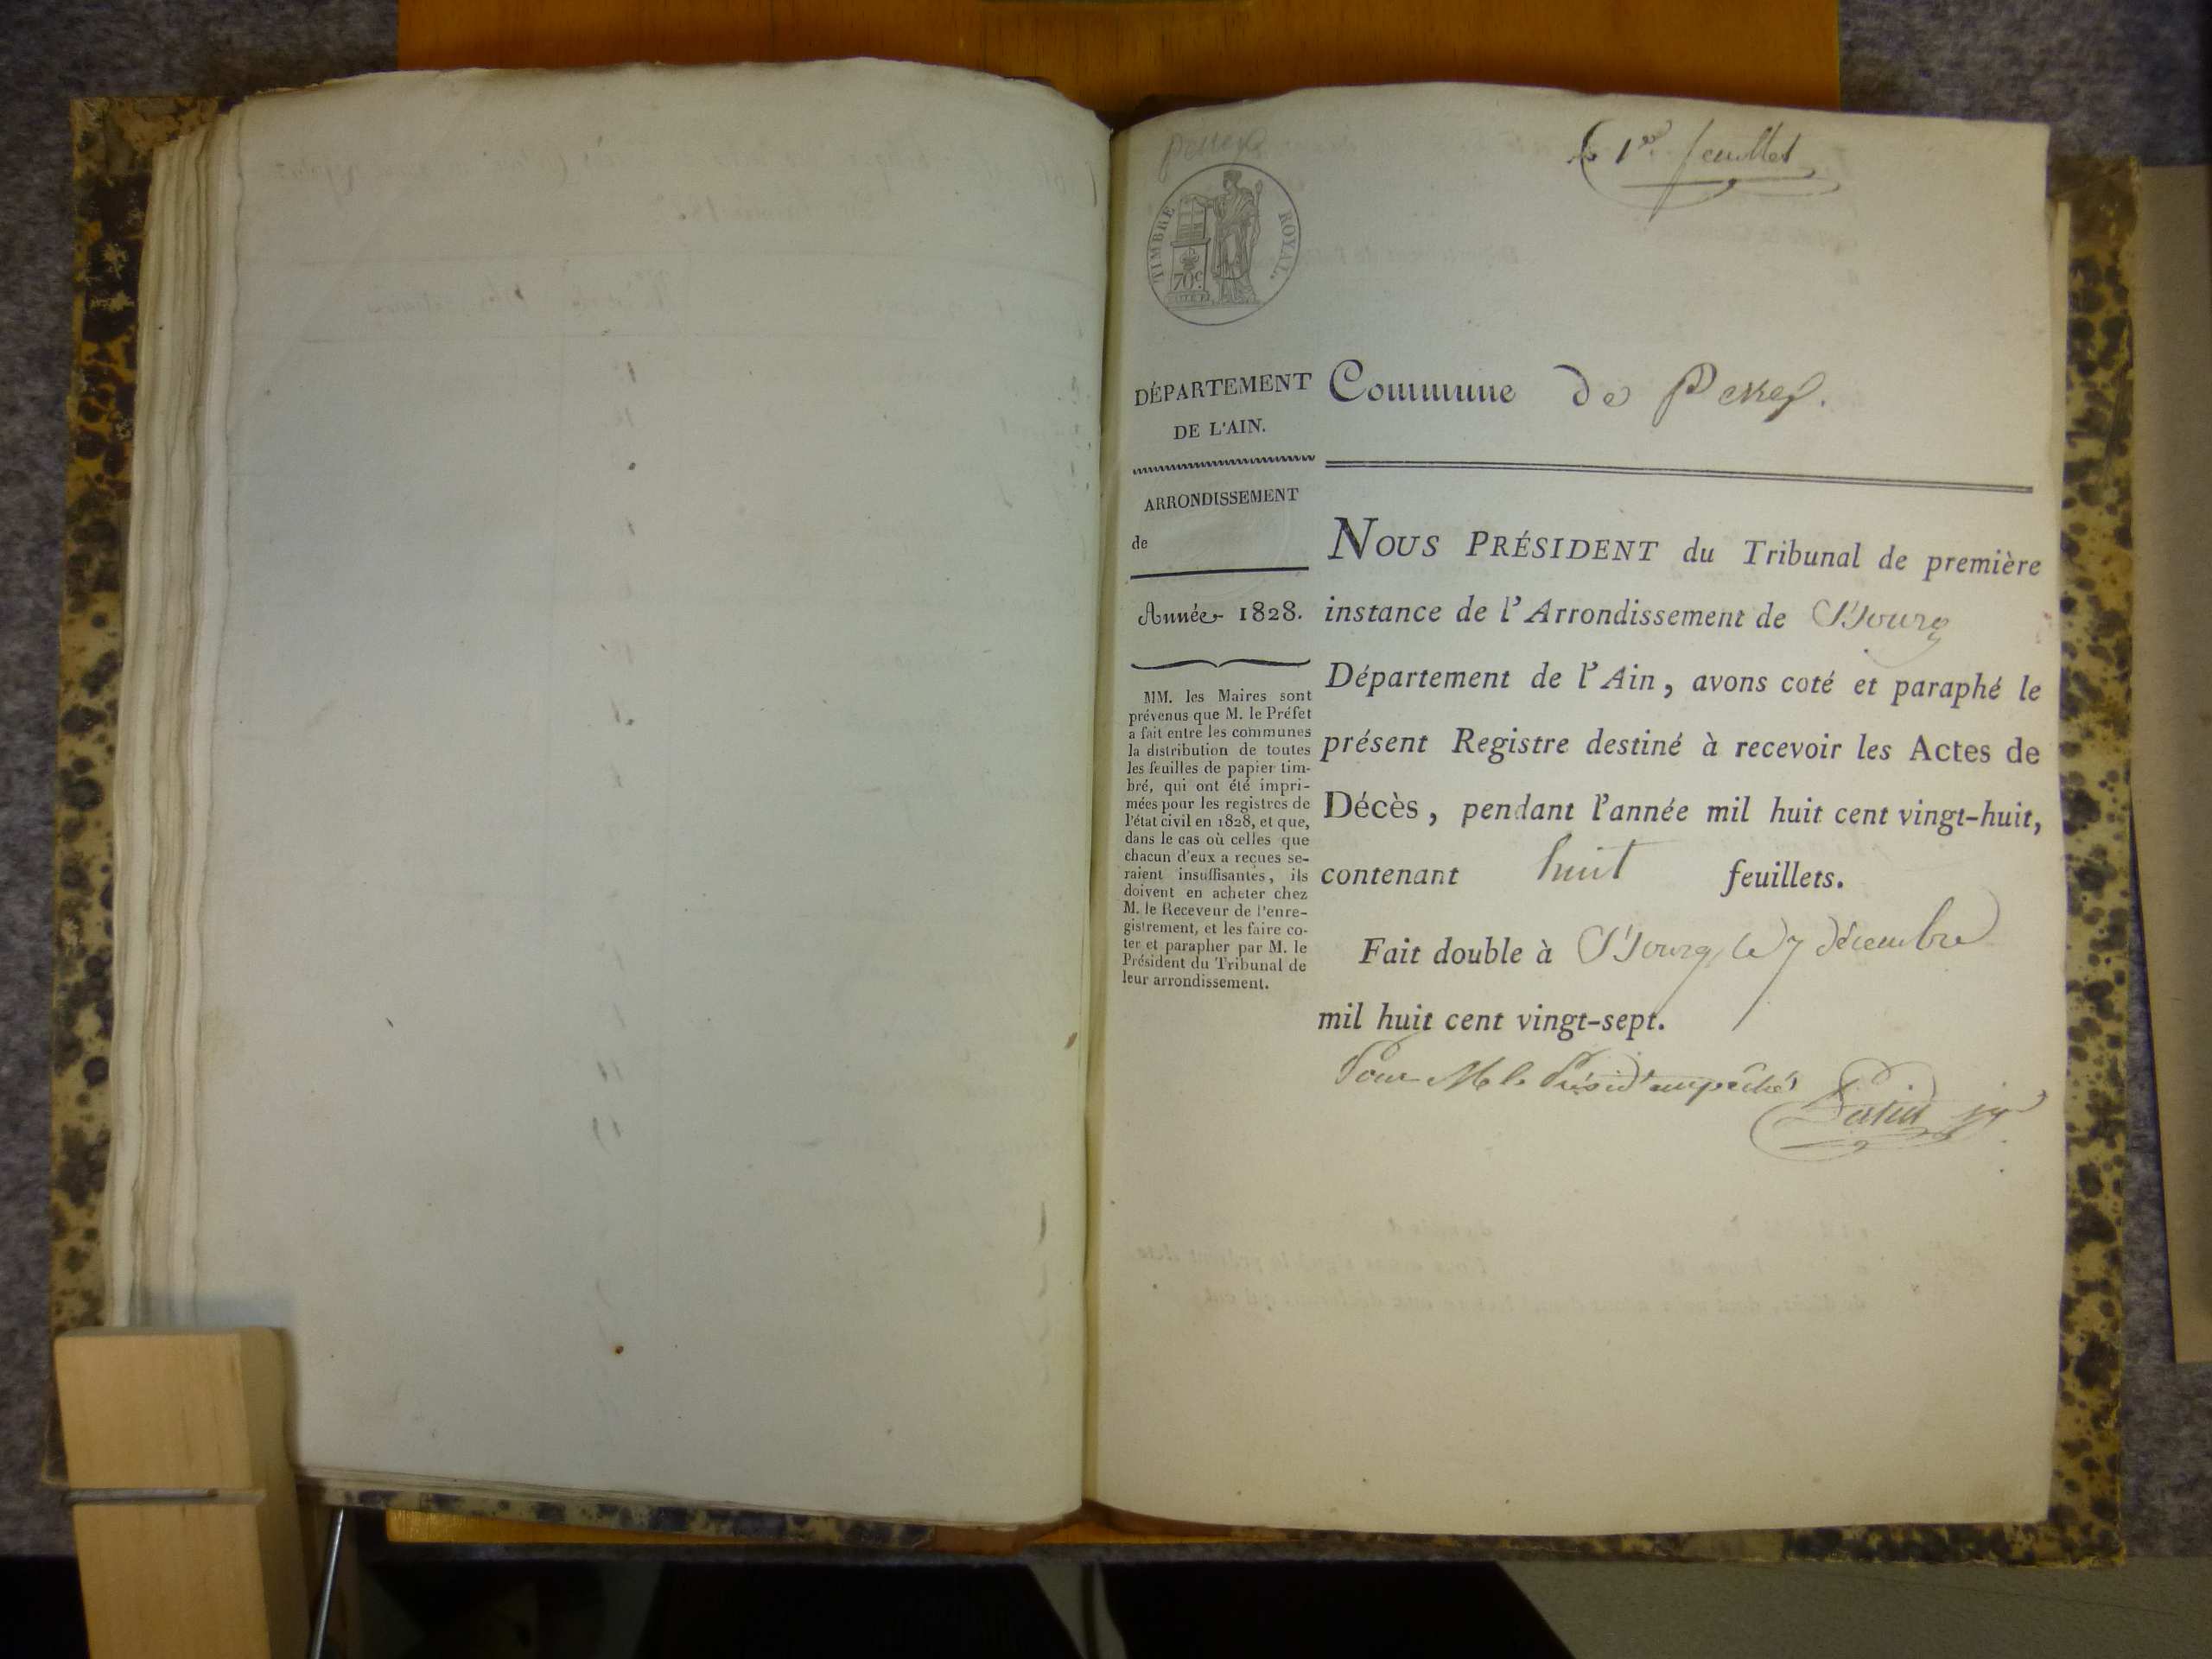 Perrex
1er feuillet
TIMBRE ROYAL.
70c.
DÉPARTEMENT
DE L'AIN.
ARRONDISSEMENT
de
Année 1828.
MM. les Maires sont
prévenus que M. le Préfet
a fait entre les communes
la distribution de toutes
les feuilles de papier tim-
bré, qui ont été impri-
mées pour les registres de
l'état civil en 1828, et que,
dans le cas où celles que
chacun d'eux a reçues se-
raient insuffisantes, ils
doivent en acheter chez
M. le Receveur de l'enre-
gistrement, et les faire co-
ter et parapher par M. le
Président du Tribunal de
leur arrondissement.
Commune de Perrex.
NOUS PRÉSIDENT du Tribunal de première
instance de l'Arrondissement de Bourg
Département de l'Ain, avons coté et paraphé le
présent Registre destiné à recevoir les Actes de
Décès, pendant l'année mil huit cent vingt-huit,
contenant huit feuillets.
Fait double à Bourg, le 7 décembre
mil huit cent vingt-sept.
Pour M le Présidt empêché